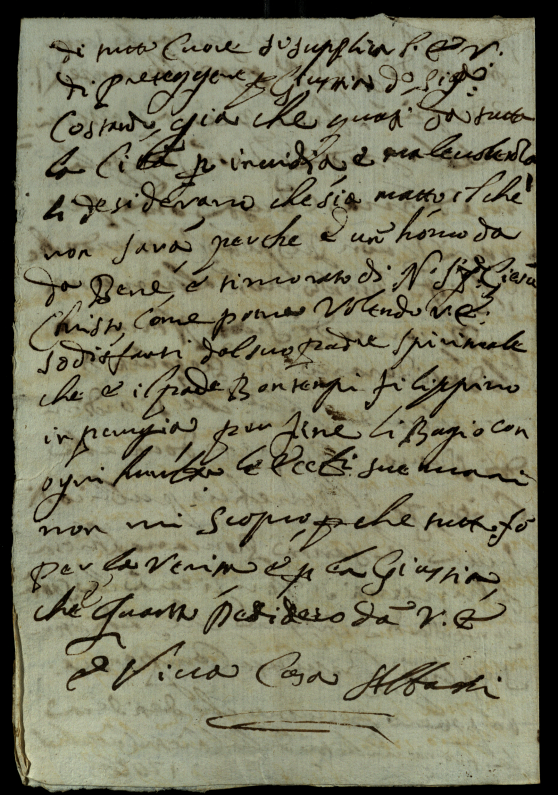 di tutto Cuore so supplica l'E. V.
di proteggere p Giustitia do Sigr
Costanzo, gia che quasi da tutta
la Città p invidia e malevolenza
si desiderano che sia matto il che
non sarà perche è un homo da
da Bene, é timorato di N. Sre Giesu
Christo Come potrà Volendo V. E.
sodisfarsi dal suo padre Spirituale
che e il padre Bontempi filippino
in perugia per fine li Bagio con
ogni humiltà le Ecc. sue mani
non mi Scopro p che tutto fo
per la Verità e p la Giustitia
che quanto desidero da V. E.
e Viva Casa Albani